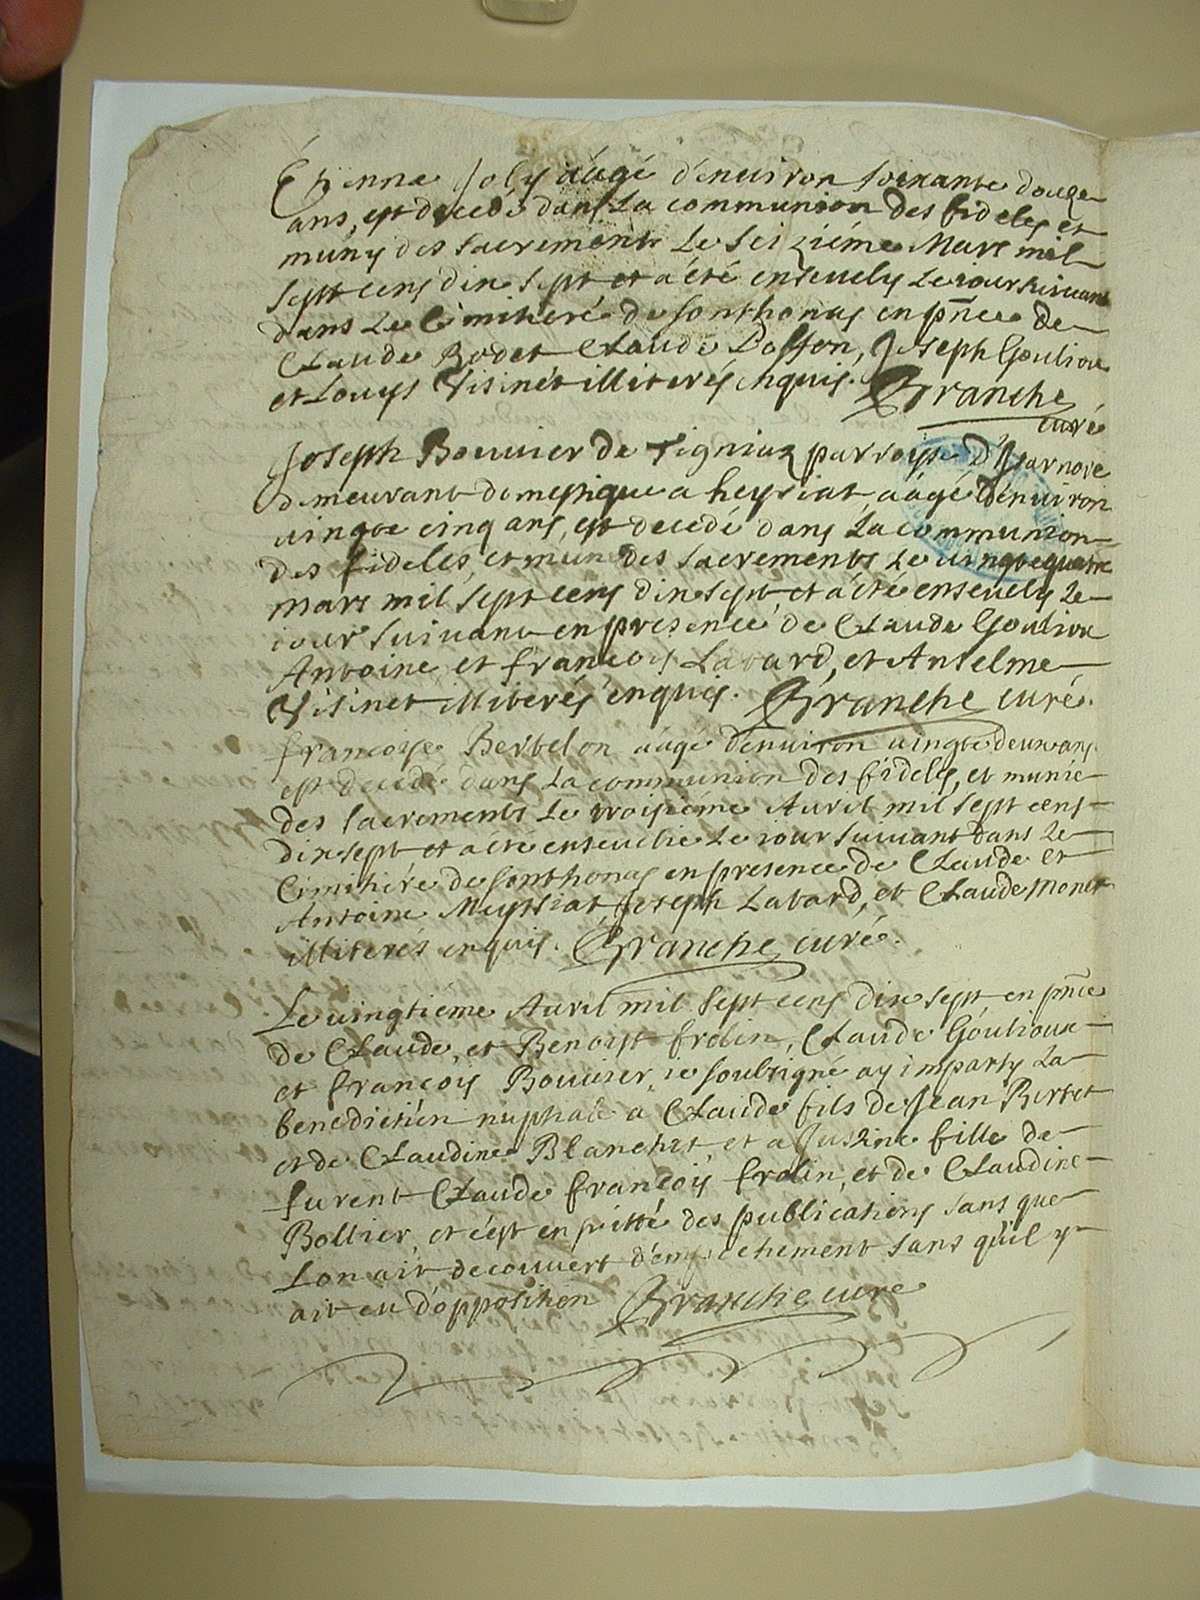 Étienne Joly áágé d'enuiron soixante douze
ans, est decedé dans La communion des fideles et
muny des sacrements Le seizième Mars mil
sept cens dix sept et a été enseuely Le iour suiuant
dans Le Cimitiere de sonthonas en pñce de
Claude Rodet Claude Daffon, Joseph Gouliou
et Louys Visinet illiterés enquis. Branche
curé
Joseph Bouuier de Tigniaz parroysse D'Isarnore
demeurant domestique a heyriat áágé d'enuiron
uingte cinq ans, est decedé dans La communion
des fideles, et muni des sacrements Le uingtequatre
mars mil sept cens dix sept, et a été enseuely Le
iour suiuant en presence de Claude Gouliou
Antoine et françois Labard, et Anselme
Visinet illiterés enquis. Branche curé.
francoise Berbelon áage d'enuiron uingte deux ans
est decedé dans La communion des fideles, et munie
des sacrements Le troisiéme Auril mil sept cens
dix sept et a été enseuelie Le iour suiuant dans Le
Cimitiére de sonthonas en presence de Claude et
Antoine Meyssiat Joseph Labard, et Claude Monet
illiterés enquis. Branche curé.
Le uingtiéme Auril mil sept cens dix sept en pñce
de Claude, et Benoist frolin, Claude Goulioux
et françois Bouuier, ie soubsigné ay imparty La
benediction nuptiale a Claude fils de Jean Bertet
et de Claudine Blanchet, et a Justine fille de
furent Claude françois frolin, et de Claudine
Boltier, et c'est en suitte des publications sans que
Lon ait decouuert d'empechement sans qu'il y
ait eu d'opposition Branche cure